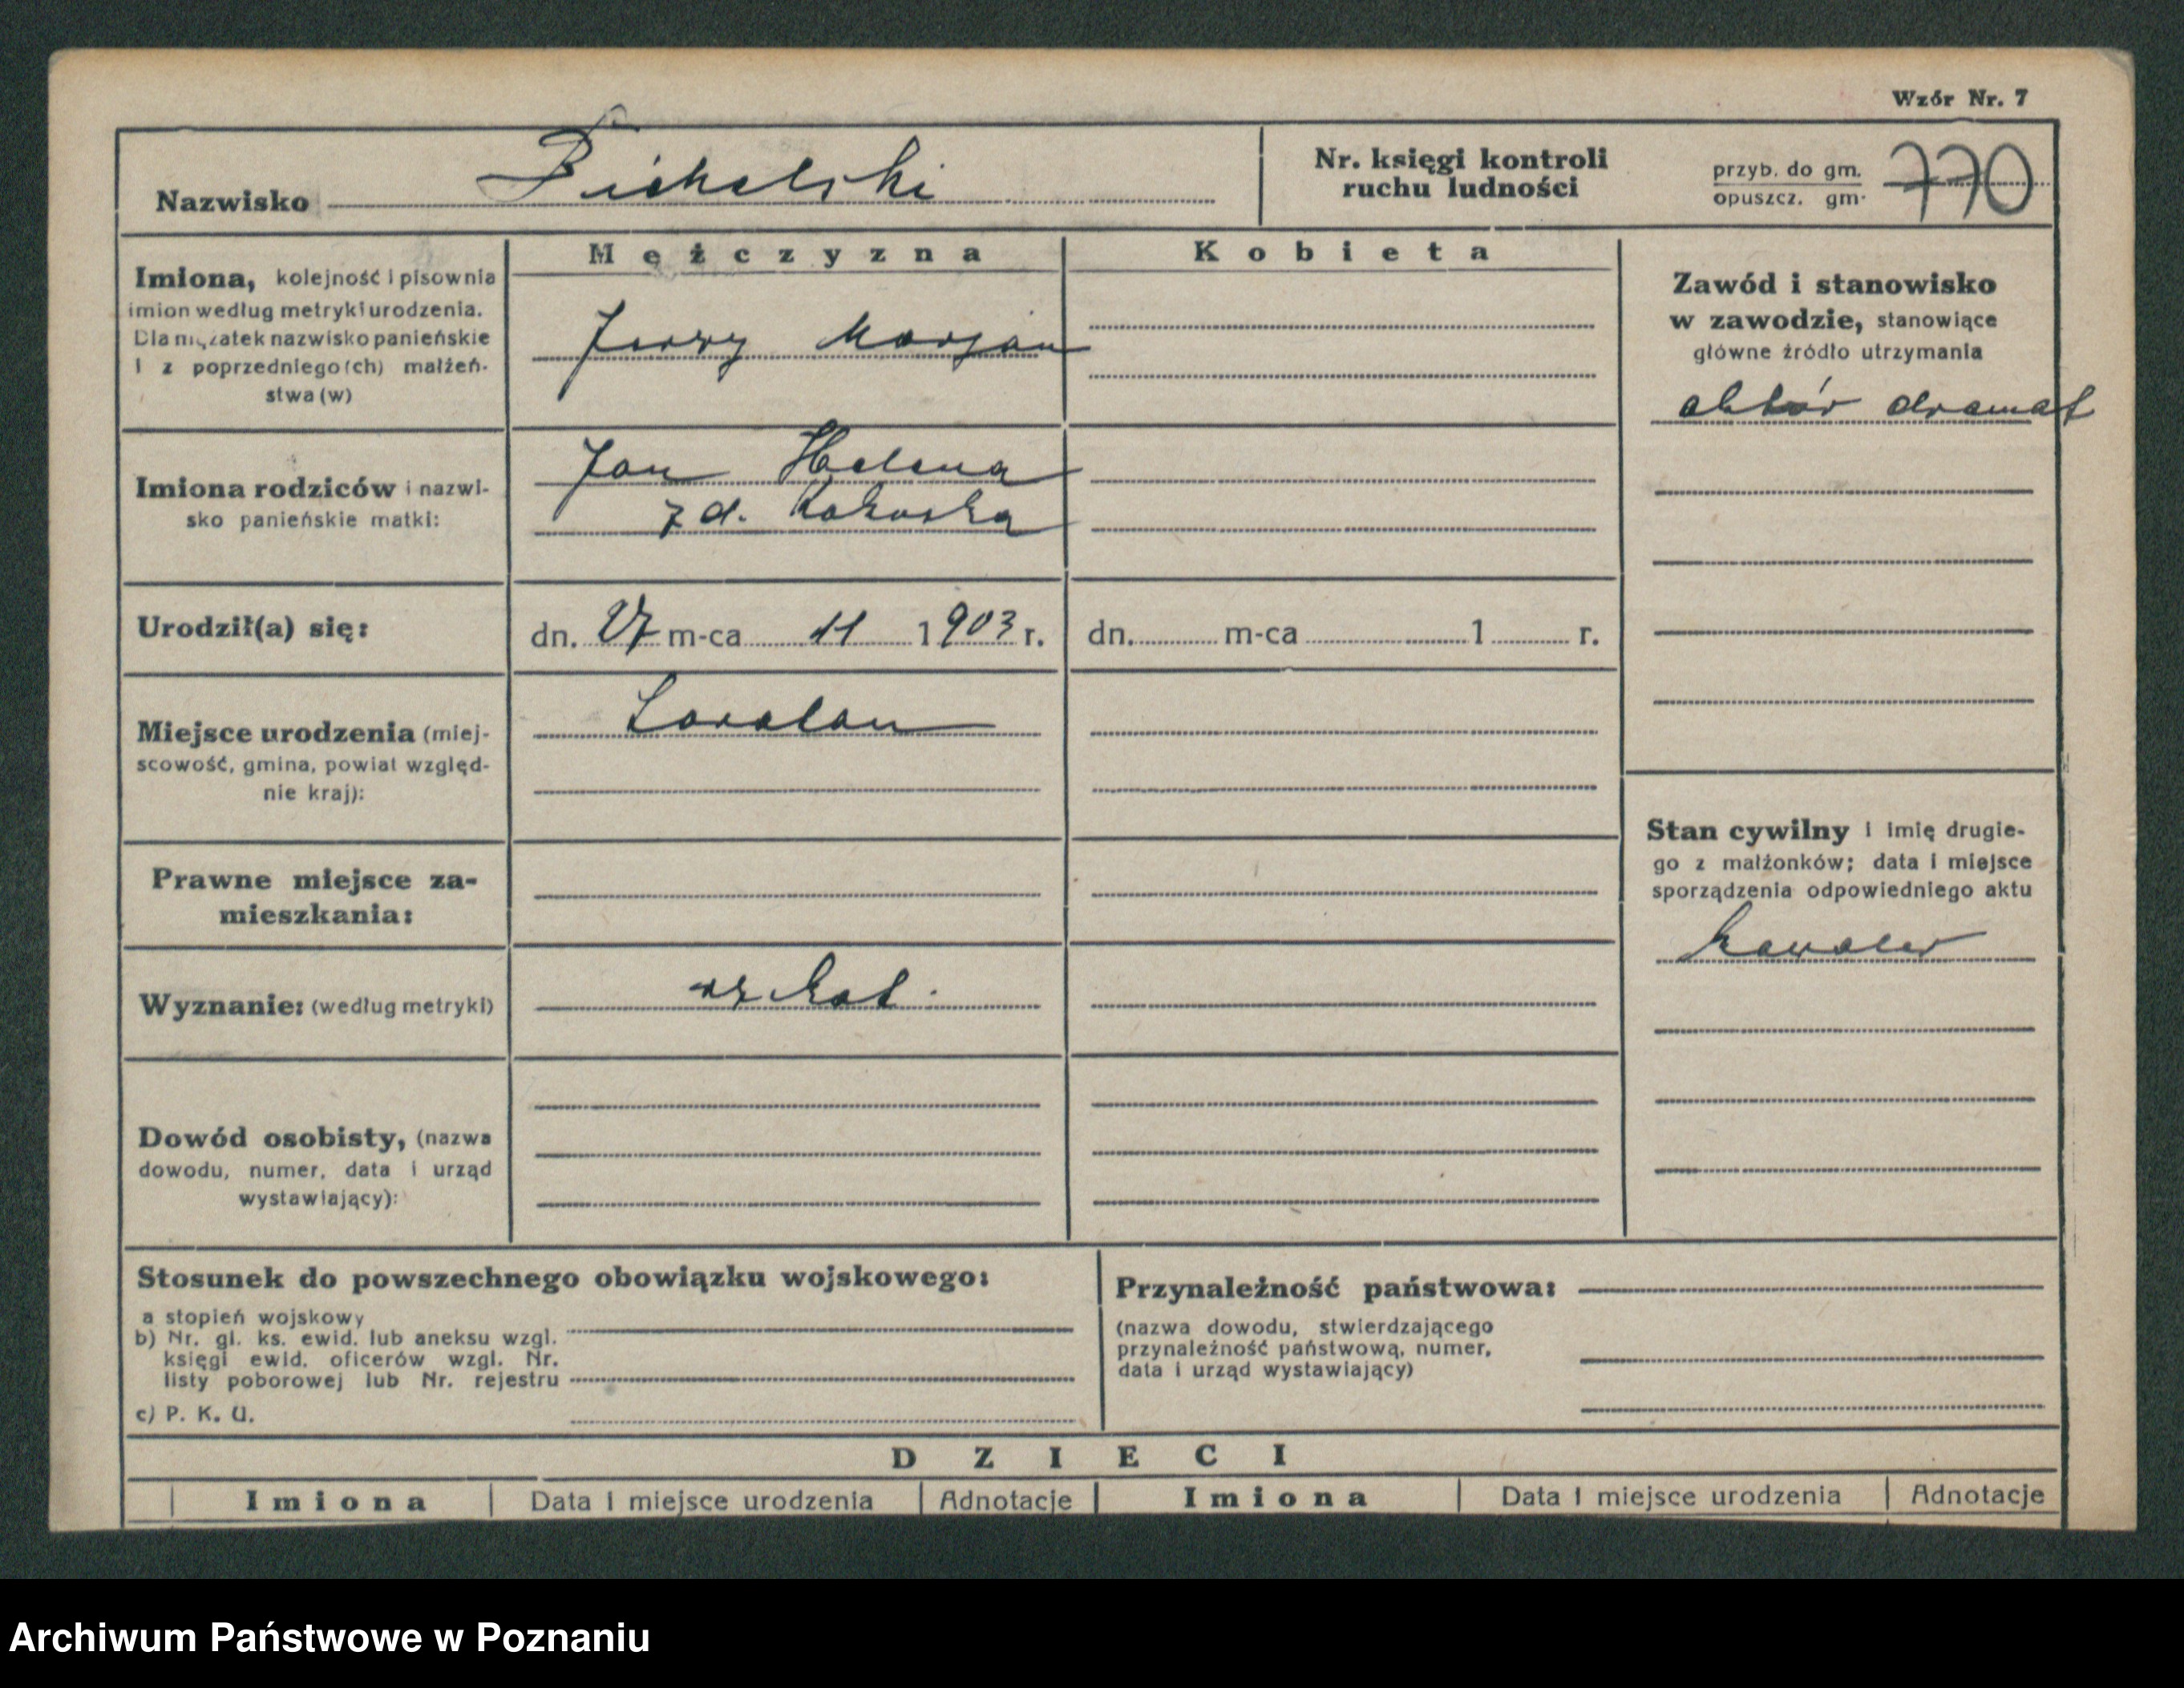 Wzór Nr. 7
Nazwisko Pichelski
Nr. księgi kontroli
ruchu ludności
przyb. do gm.
opuszcz. gm.
770
Mężczyzna
Kobieta
Imiona, kolejność i pisownia
imion według metryki urodzenia.
Dla mężatek nazwisko panieńskie
i z poprzedniego(ch) małżeń-
stwa(w)
Jerzy Marjan
Zawód i stanowisko
w zawodzie, stanowiące
główne źródło utrzymania
aktór dramat
Imiona rodziców i nazwi-
sko panieńskie matki:
Jan Helena
z d.
Urodził(a) się:
dn. 27 m-ca 11 1903 r.
dn. m-ca 1 r.
Miejsce urodzenia (miej-
scowość, gmina, powiat względ-
nie kraj):
Prawne miejsce za-
mieszkania:
Stan cywilny i imię drugie-
go z małżonków; data i miejsce
sporządzenia odpowiedniego aktu
kawaler
Wyznanie: (według metryki)
rz kat.
Dowód osobisty, (nazwa
dowodu, numer, data i urząd
wystawiający):
Stosunek do powszechnego obowiązku wojskowego:
a stopień wojskowy
b) Nr. gł. ks. ewid. lub aneksu wzgl.
księgi ewid. oficerów wzgl. Nr.
listy poborowej lub Nr. rejestru
c) P. K. U.
Przynależność państwowa:
(nazwa dowodu, stwierdzającego
przynależność państwową, numer,
data i urząd wystawiający)
DZIECI
Imiona Data i miejsce urodzenia Adnotacje Imiona Data i miejsce urodzenia Adnotacje
Archiwum Państwowe w Poznaniu